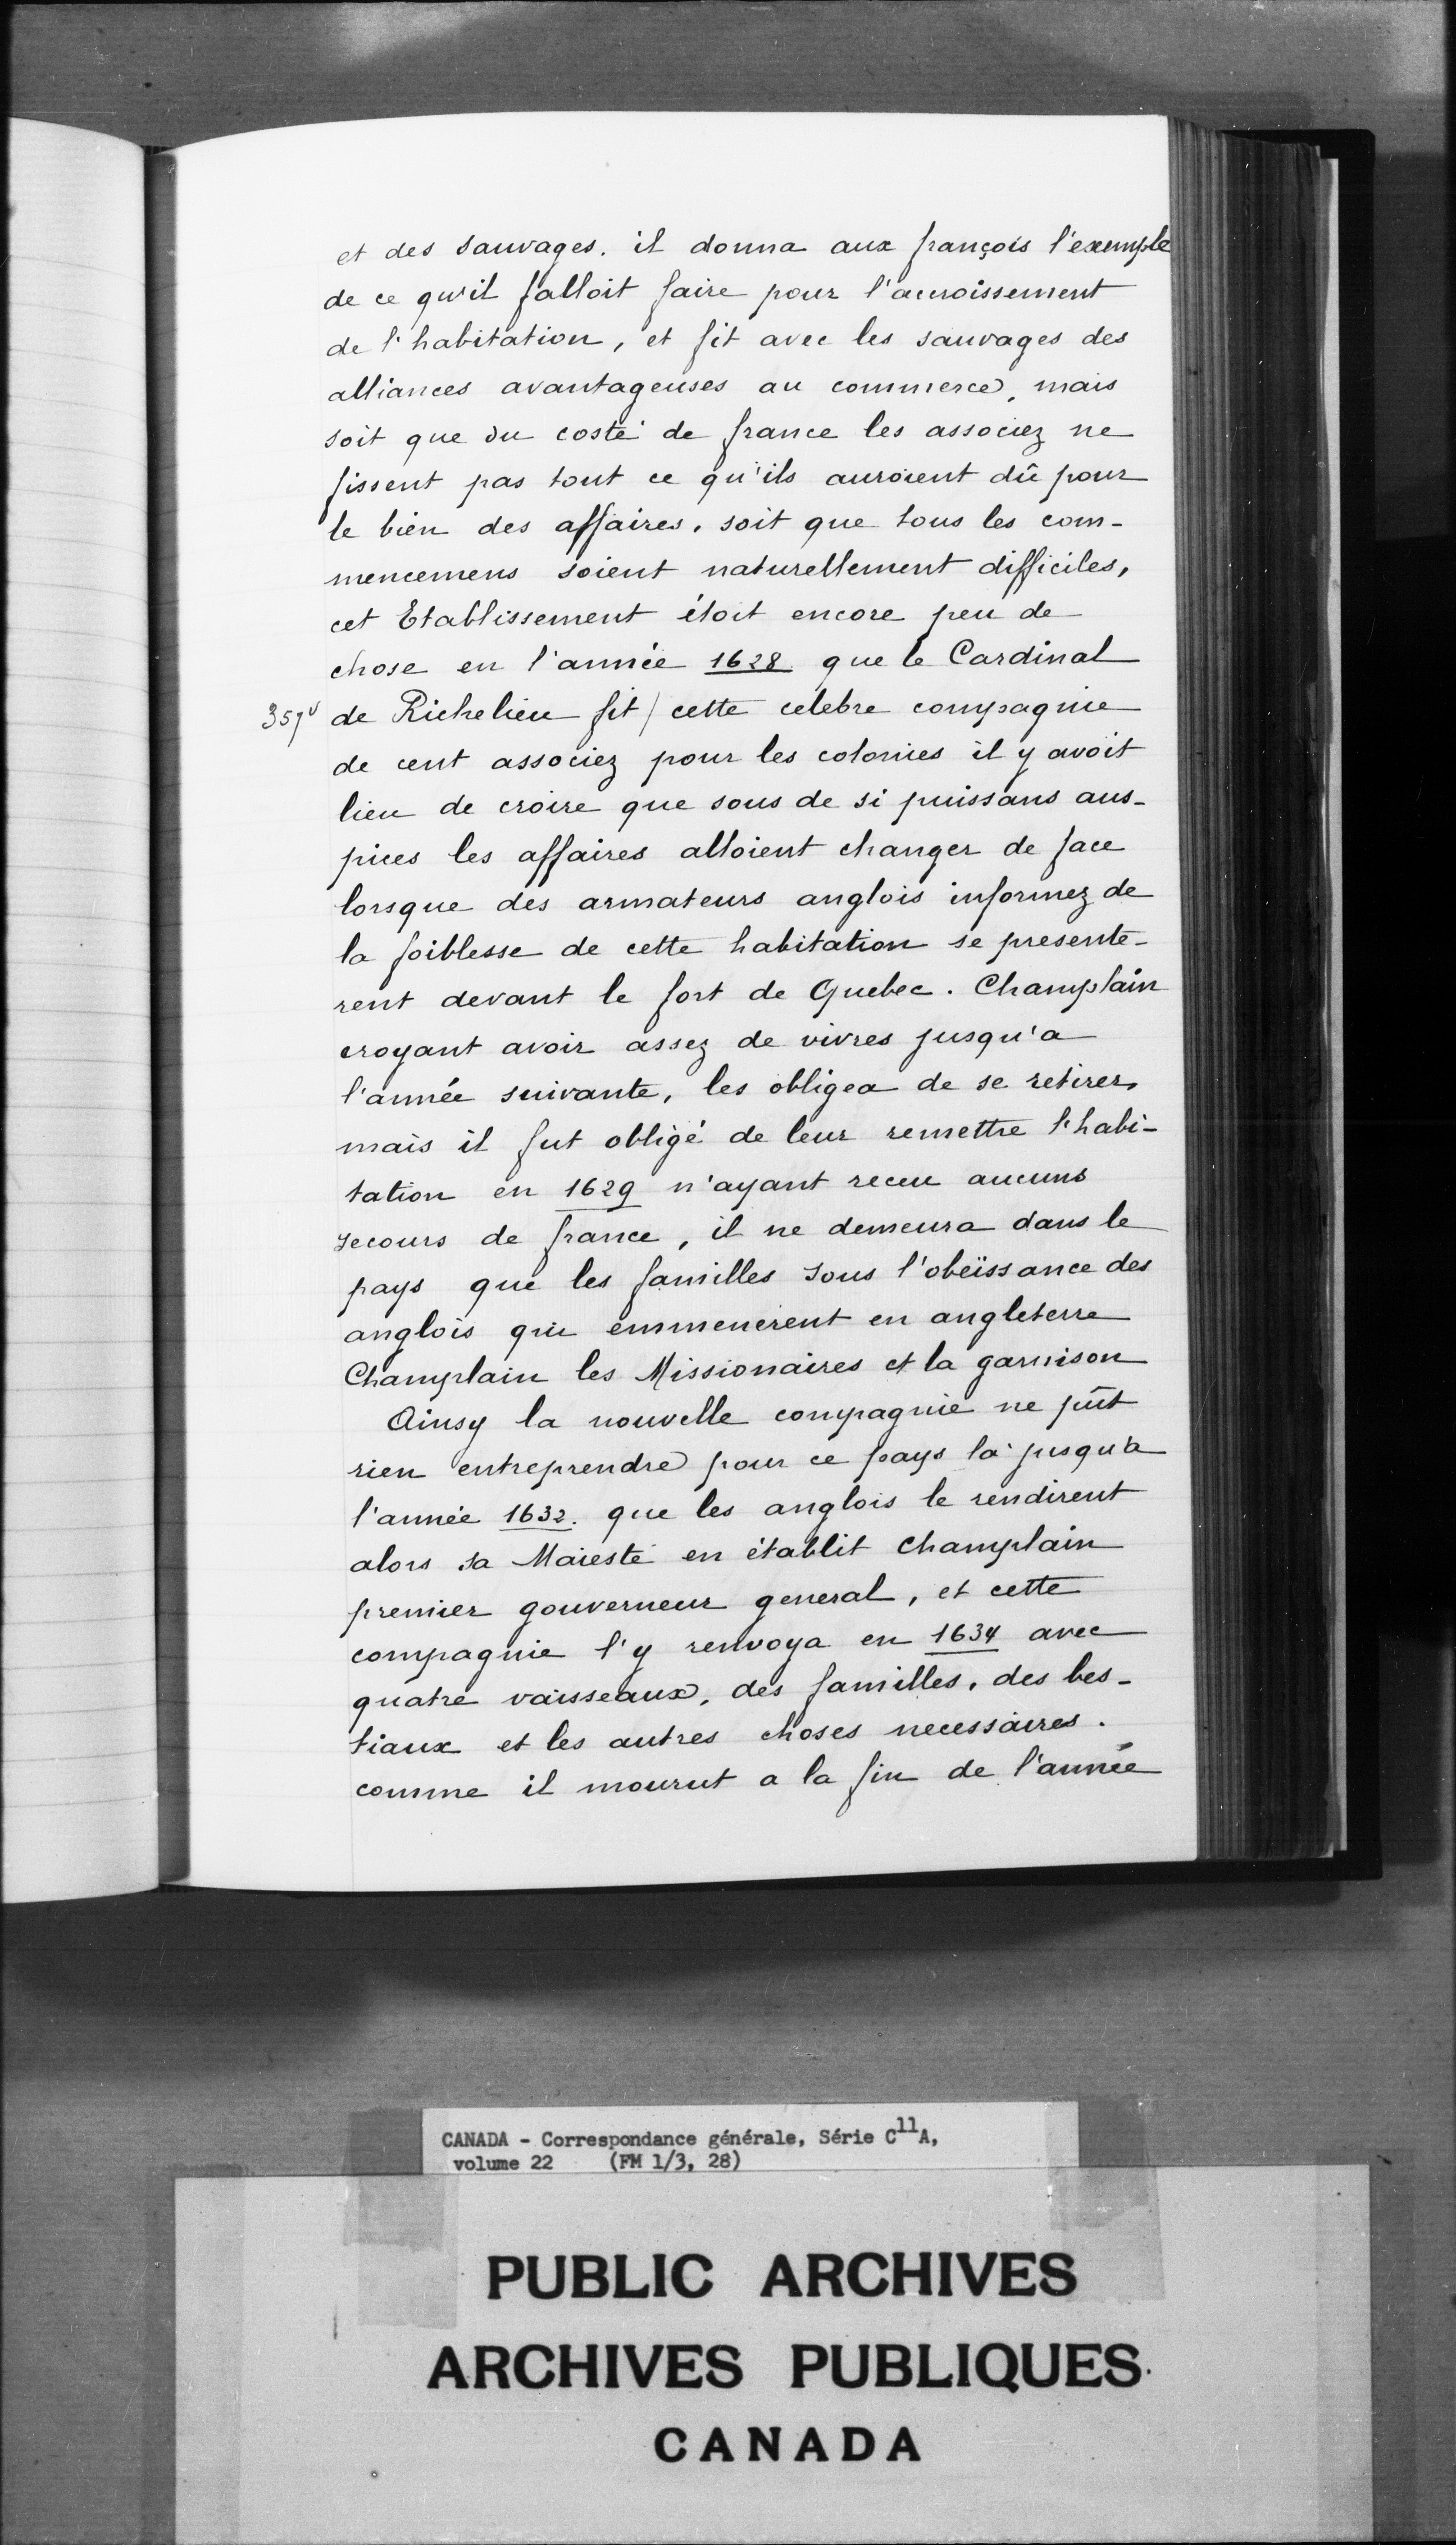 et des sauvages. il donna aux françois l'exemple
de ce qu'il falloit faire pour l'accroissement
de l'habitation, et fit avec les sauvages des
alliances avantageuses au commerce, mais
soit que du costé de france les associez ne
fissent pas tout ce qu'ils auroient dû pour
le bien des affaires, soit que tous les com-
mencemens soient naturellement difficiles,
cet Etablissement étoit encore peu de
chose en l'année 1628. que le Cardinal
357v de Richelieu fit / cette celebre compagnie
de cent associez pour les colonies il y avoit
lieu de croire que sous de si puissans aus-
pices les affaires alloient changer de face
lorsque des armateurs anglois informez de
la foiblesse de cette habitation se presente-
rent devant le fort de Quebec. Champlain
croyant avoir assez de vivres jusqu'a
l'année suivante, les obligea de se retirer,
mais il fut obligé de leur remettre l'habi-
tation en 1629 n'ayant receu aucuns
secours de france, il ne demeura dans le
pays que les familles sous l'obeïssance des
anglois qui emmenerent en angleterre
Champlain les Missionaires et la garnison
Ainsy la nouvelle compagnie ne pût
rien entreprendre pour ce pays là jusqu'a
l'année 1632. que les anglois le rendirent
alors sa Maiesté en établit champlain
premier gouverneur general, et cette
compagnie l'y renvoya en 1634 avec
quatre vaisseaux, des familles, des bes-
tiaux et les autres choses necessaires.
comme il mourut a la fin de l'année
CANADA - Correspondance générale, Série C11A,
volume 22 (FM 1/3, 28)
PUBLIC ARCHIVES
ARCHIVES PUBLIQUES
CANADA